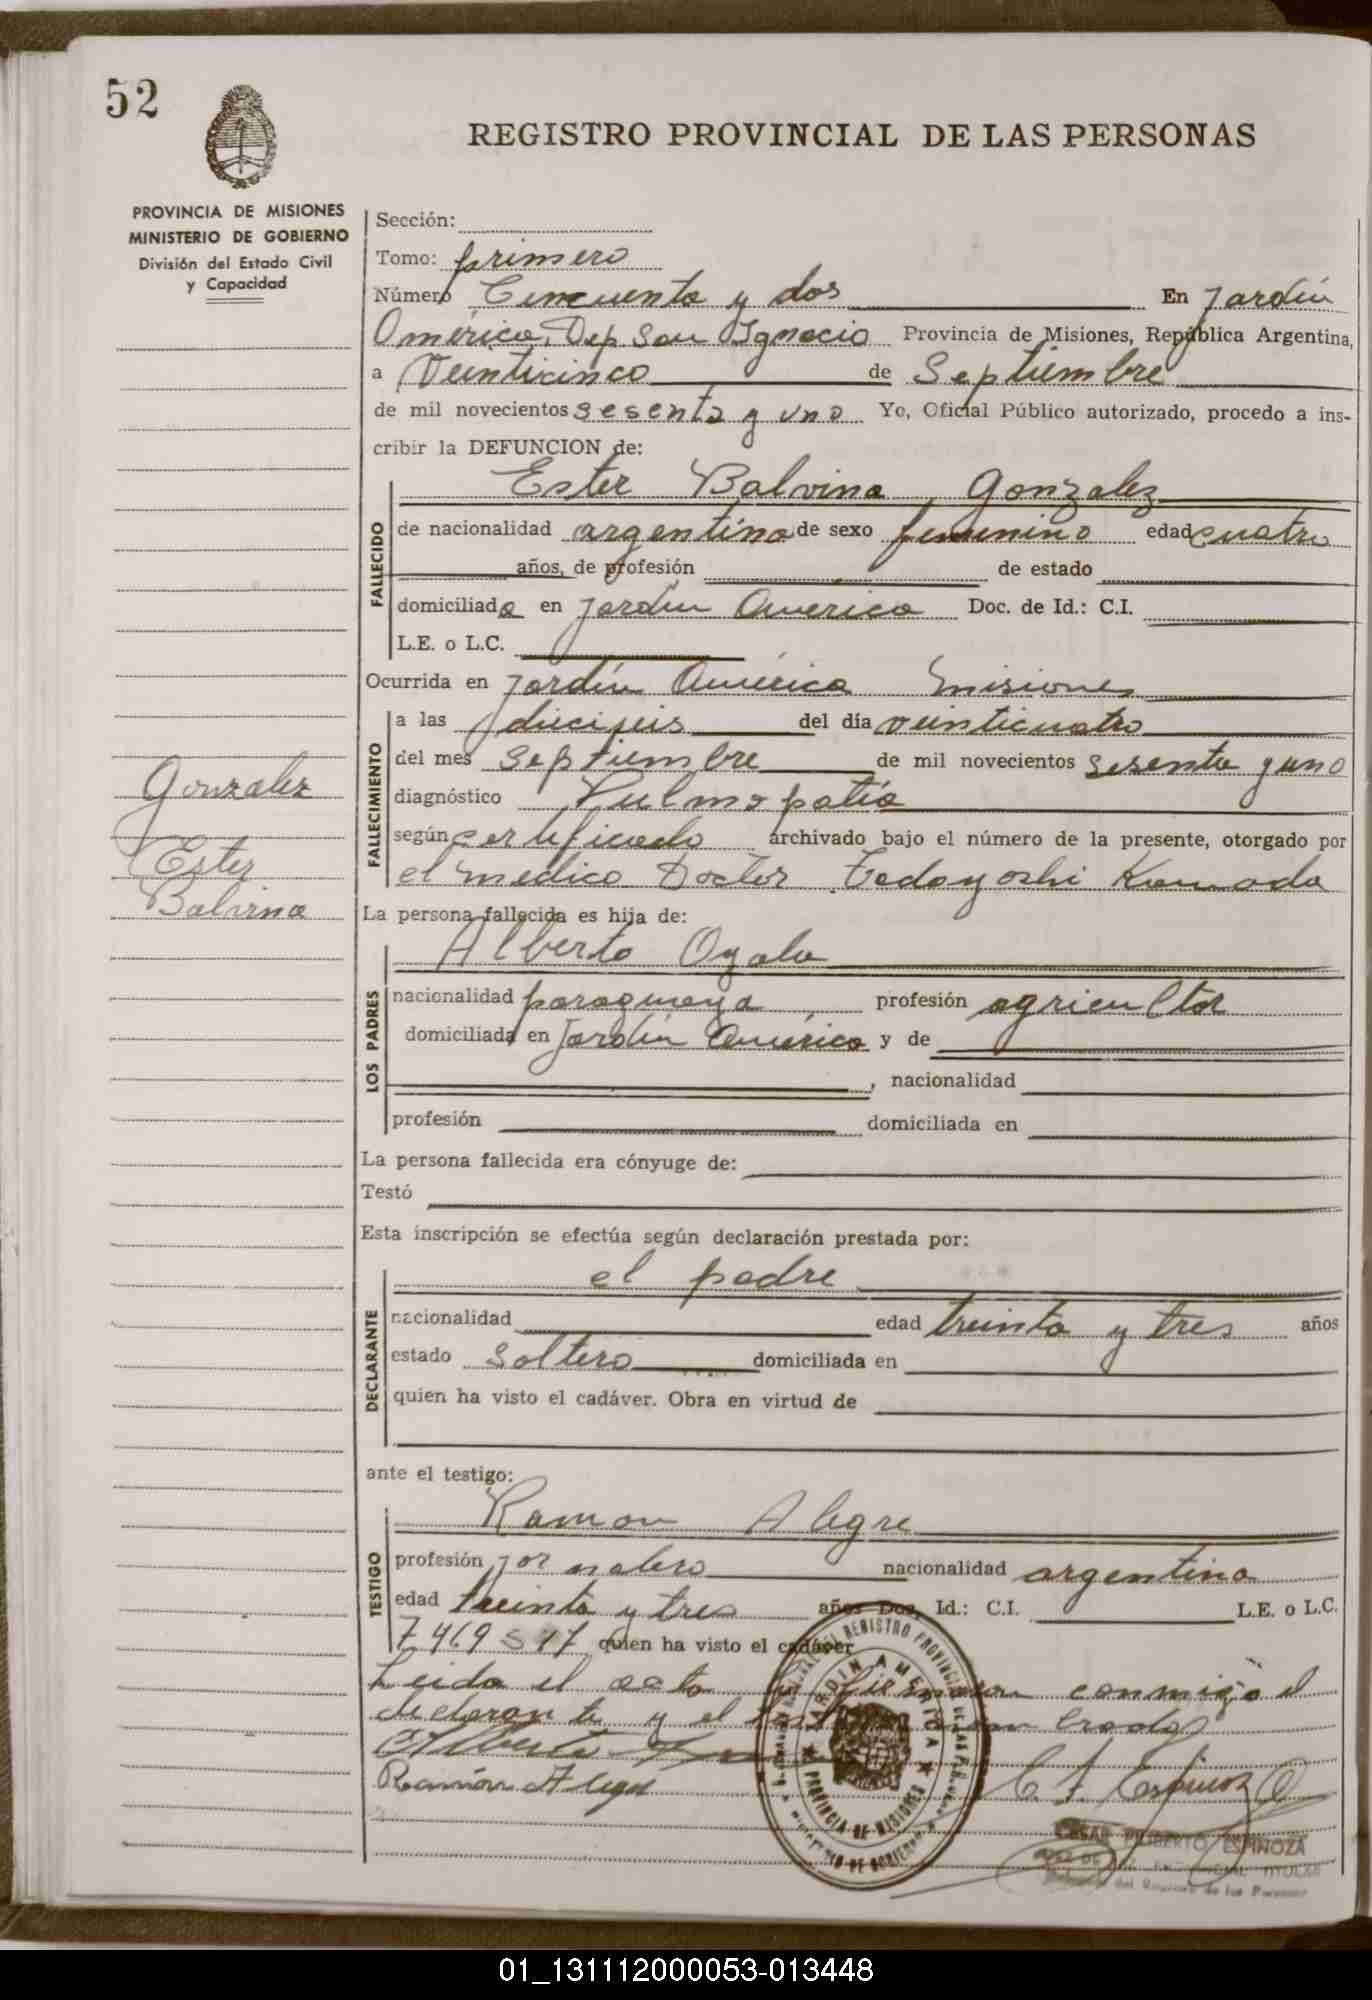 52
REGISTRO PROVINCIAL DE LAS PERSONAS
PROVINCIA DE MISIONES
MINISTERIO DE GOBIERNO
División del Estado Civil
y Capacidad
Sección:
Tomo: primero
Número Cincuenta y dos En Jardín
América, Dep San Ignacio Provincia de Misiones, República Argentina,
a Veinticinco de Septiembre
de mil novecientos sesenta y uno Yo, Oficial Público autorizado, procedo a ins-
cribir la DEFUNCION de:
Ester Balvina Gonzalez
FALLECIDO
de nacionalidad argentina de sexo femenino edad cuatro
años, de profesión de estado
domiciliada en Jardín América Doc. de Id.: C.I.
L.E. o L.C.
Ocurrida en Jardín América Misiones
FALLECIMIENTO
a las dieciseis del día veinticuatro
del mes septiembre de mil novecientos sesenta y uno
diagnóstico Pulmopatía
según certificado archivado bajo el número de la presente, otorgado por
el medico Doctor Tadayoshi Kamada
Gonzalez
Ester
Balvina
La persona fallecida es hija de:
Alberto Ayala
LOS PADRES
nacionalidad paraguaya profesión agricultor
domiciliada en Jardín América y de
, nacionalidad
profesión domiciliada en
La persona fallecida era cónyuge de:
Testó
Esta inscripción se efectúa según declaración prestada por:
el padre
DECLARANTE
nacionalidad edad treinta y tres años
estado soltero domiciliada en
quien ha visto el cadáver. Obra en virtud de
ante el testigo:
Ramon Alegre
TESTIGO
profesión jornalero nacionalidad argentina
edad treinta y tres años Doc. Id.: C.I. L.E. o L.C.
7469517 quien ha visto el cadáver
Leida el acta la firman conmigo el
declarante y el
Alberto
Ramón Alegre C. F. Espinoza
JARDIN AMERICA
PROVINCIA DE MISIONES
CESAR FILIBERTO ESPINOZA
TITULAR
del Registro de las Personas
01_131112000053-013448